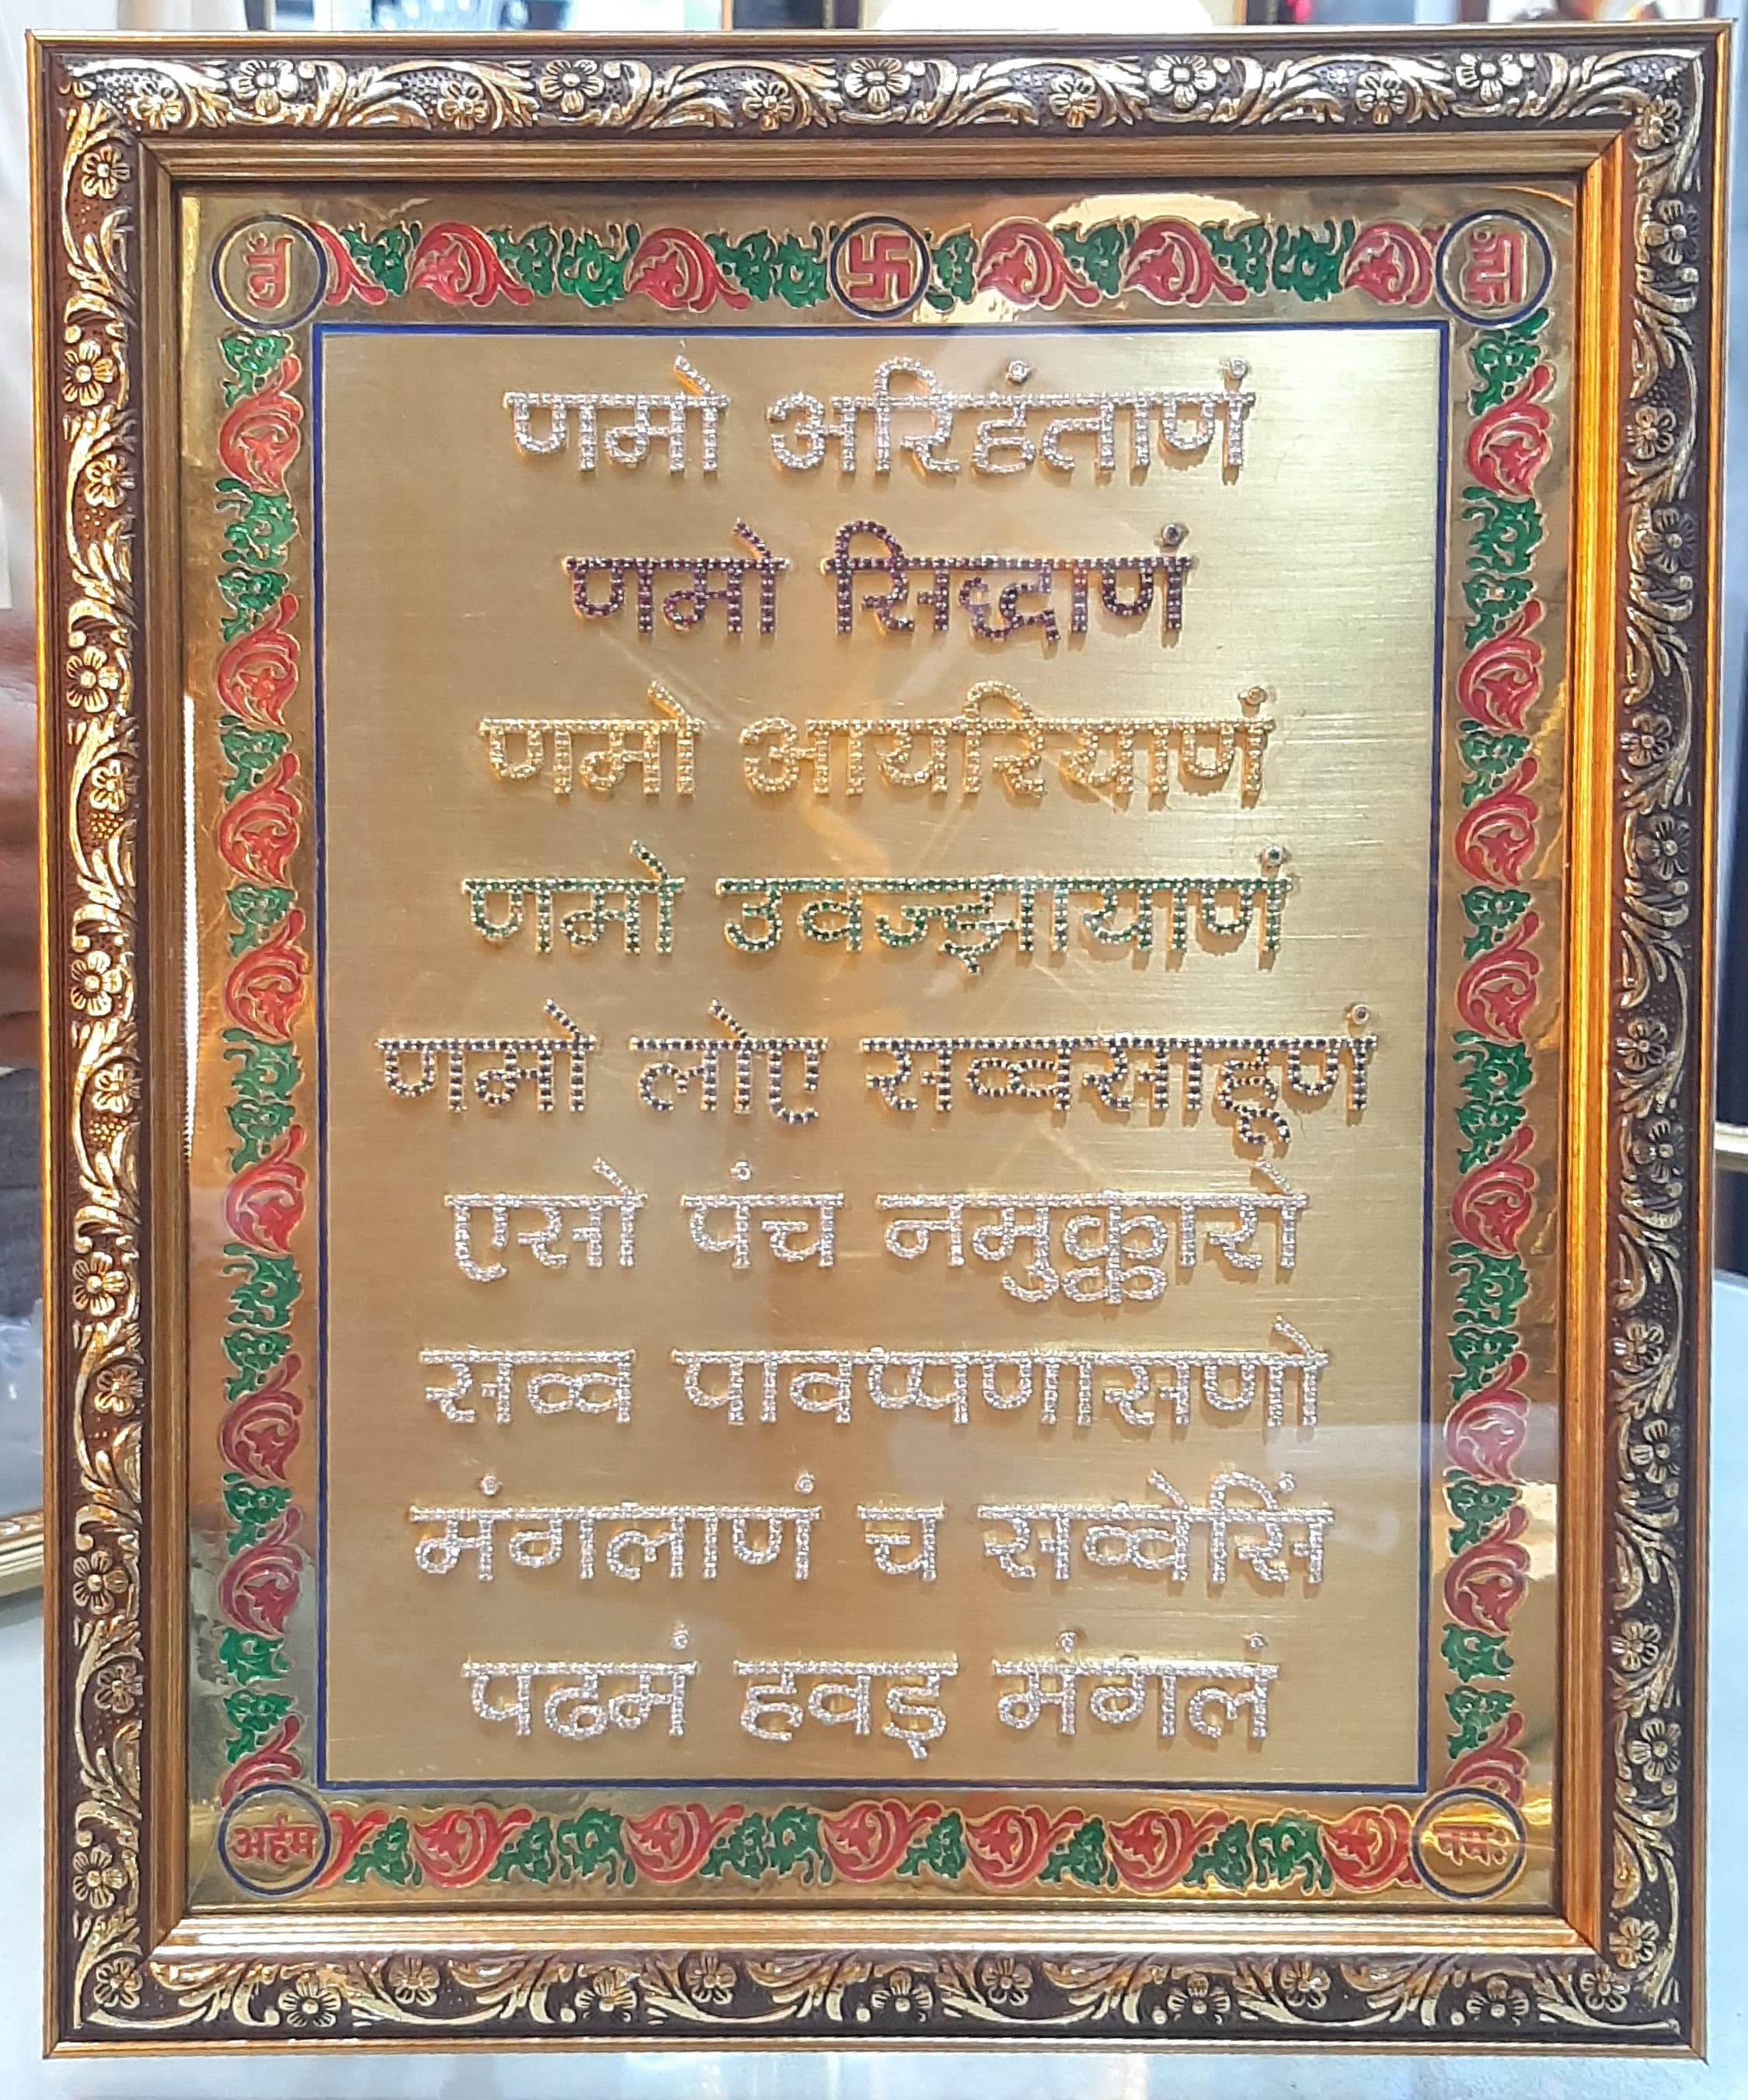 णमो अरिहंताणं
णमो सिद्धाणं
णमो आयरियाणं
णमो उवज्झायाणं
णमो लोए सव्वसाहूणं
एसो पंच नमुक्कारो
सव्व पावप्पणासणो
मंगलाणं च सव्वेसिं
पढमं हवइ मंगलं
अर्हम नमः